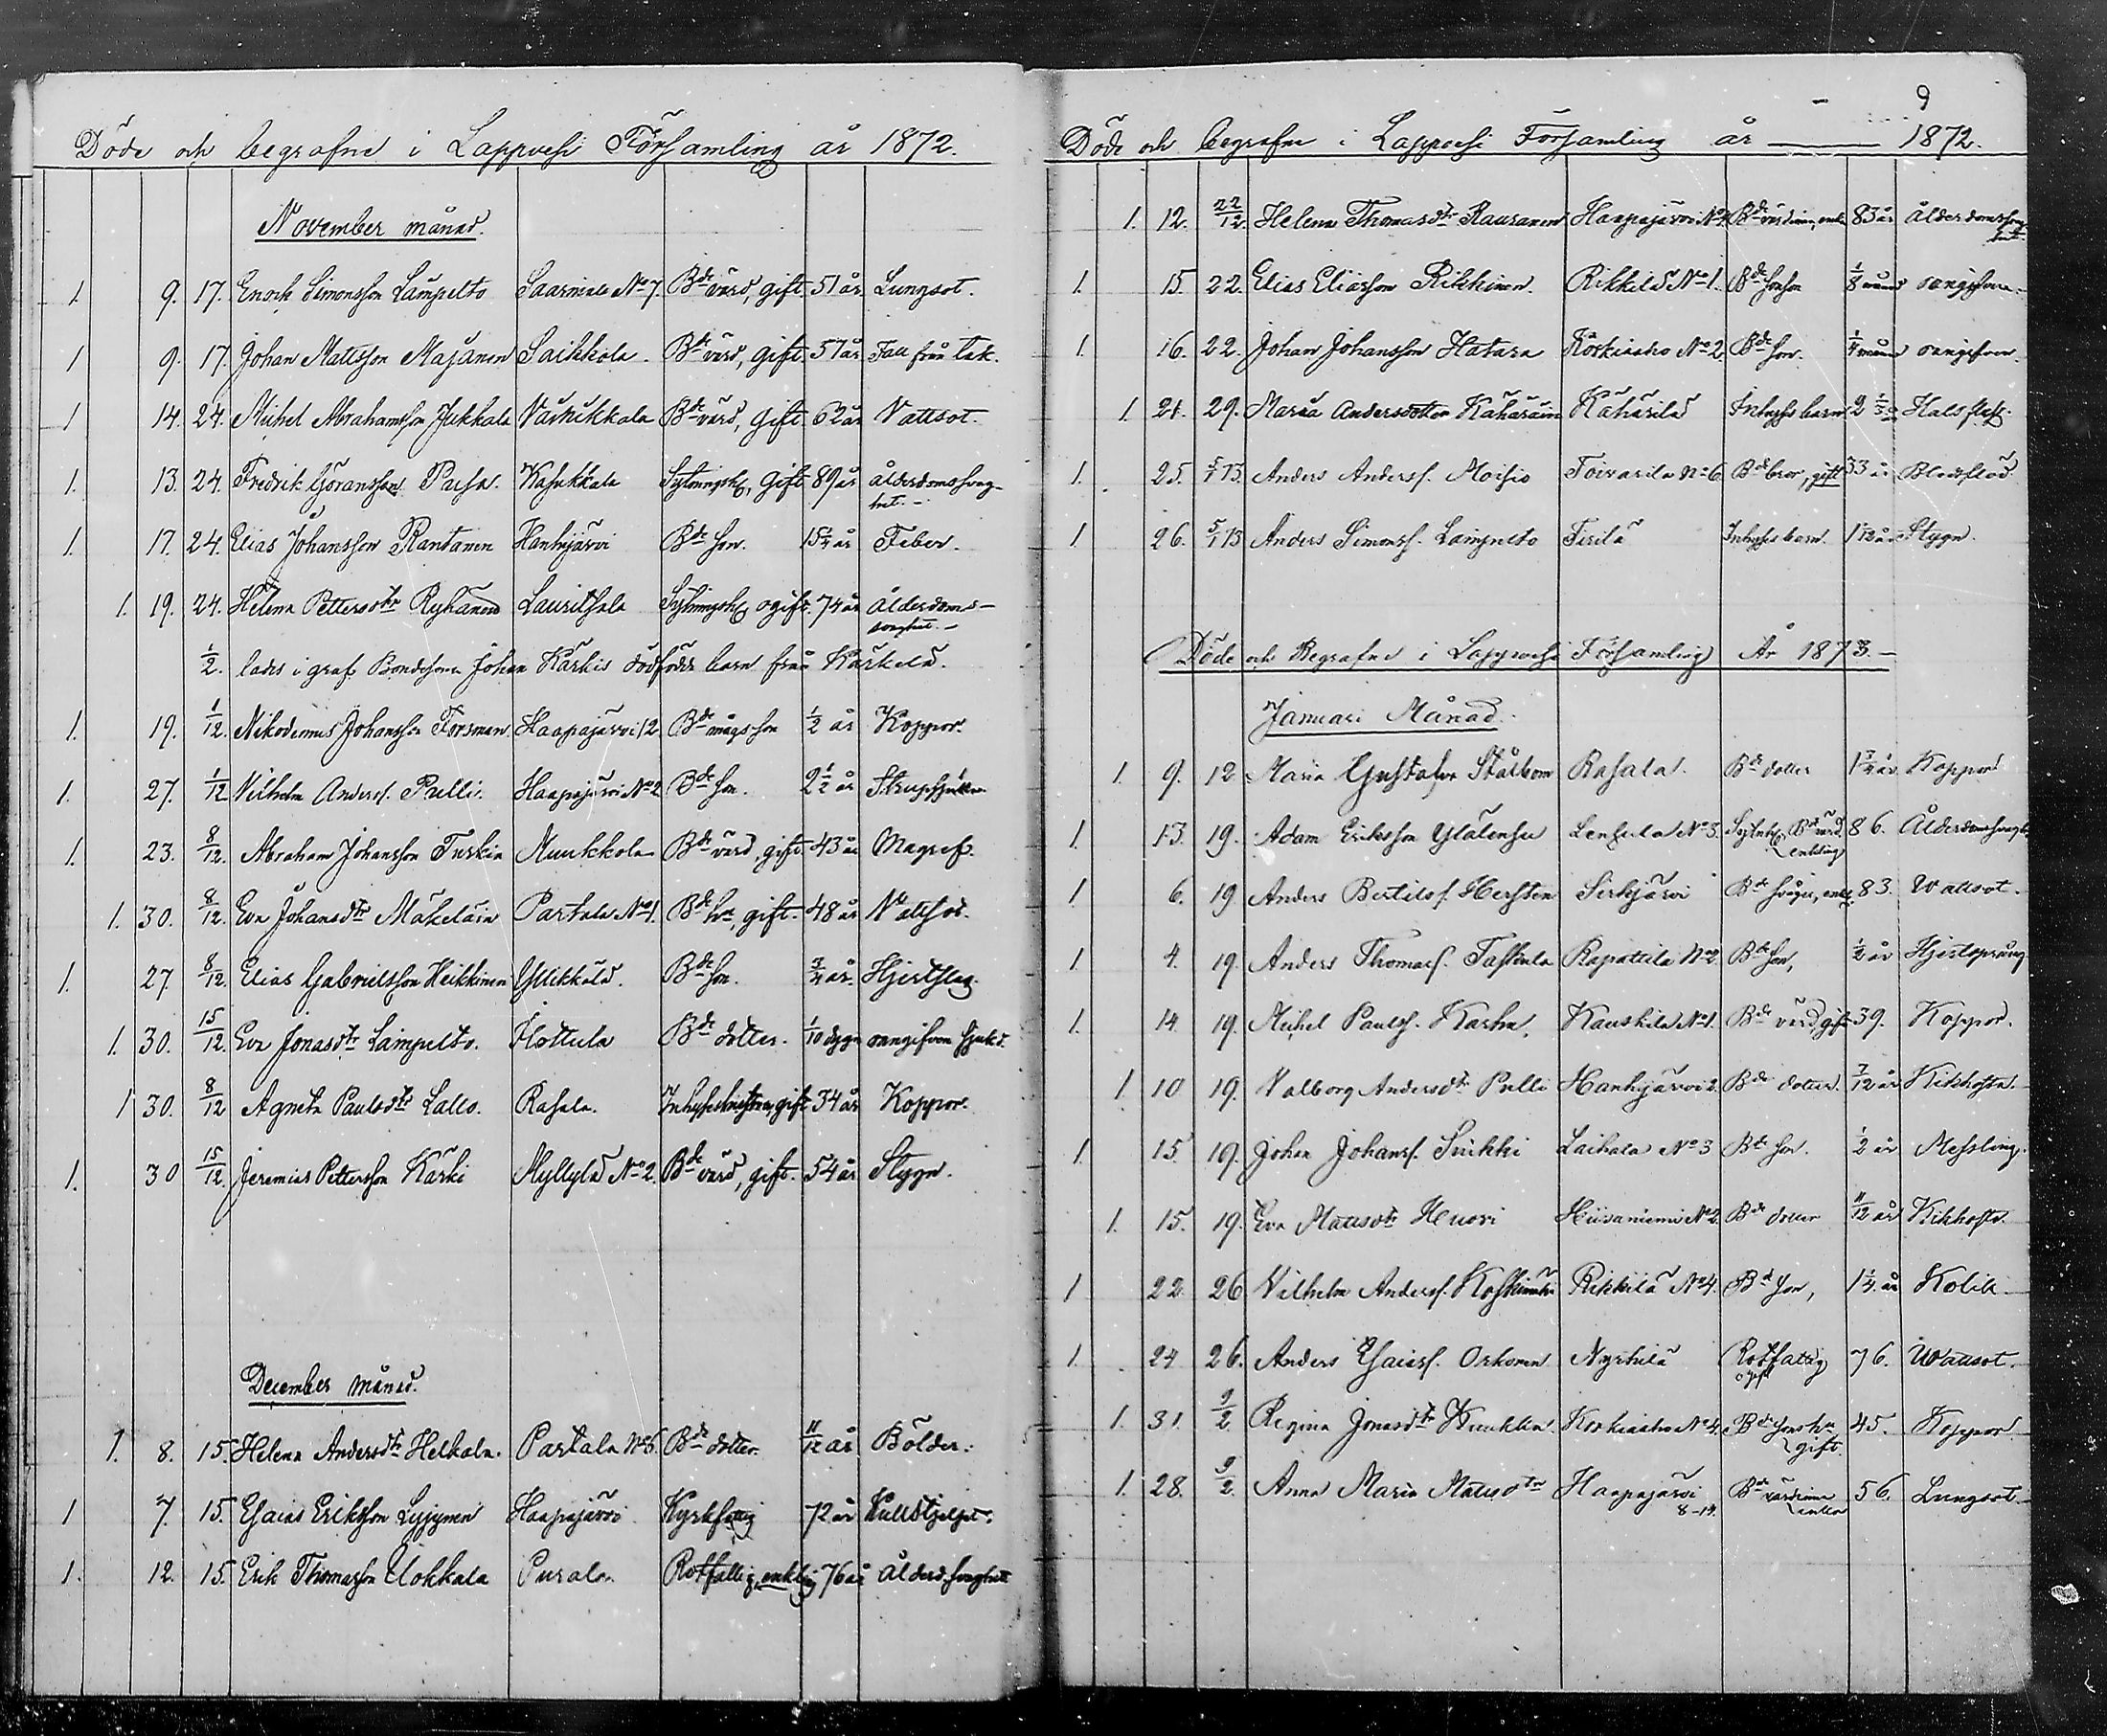 Döde och begrafne i Lappvesi Församling år 1872.
November månad.
1. 9. 17. Enoch Simonsson Lampelto Saarniala No 7. Bde värd, gift. 51 år. Lungsot.
1 9. 17. Johan Mattsson Majänen Saikkola. Bde värd, gift. 57 år. Fall från tak.
1 14. 24. Michel Abrahamsson Jukkala Vainikkala Bde värd, gift. 62 år Vattsot.
1. 13. 24. Fredrik Göransson Kasukkala Sytningsh, gift 89 år ålderdomssvag-
het.-
1. 17. 24. Elias Johansson Rantanen Hanhijärvi Bde son. 15 år Feber.
1. 19. 24. Helena Pettersdtr Ryhänen Lauritsala Sytningsh ogift. 74 år Ålderdoms-
svaghet.-
1/2. lades i graf Bondesonen Johan Kärkis dödfödda barn från Kärkelä.
1. 19. 1/12. Nikodemus Johansson Forsman. Haapajärvi 12 Bde mågs son 1/2 år Koppor.
1. 27. 1/12 Vilhelm Anderss. Pulli. Haapajärvi No 2 Bde son. 2 1/2 år Strupsjukan
1. 23. 8/12. Abraham Johansson Turkia Muukkola Bde värd, gift. 43 år Magref.
1. 30. 8/12. Eva Johansdtr Mäkeläin Partala No 1. Bde ha, gift. 48 år Vattsot.
1. 27. 8/12. Elias Gabrielsson Heikkinen Yllikkälä. Bde son. 3/4 år. Hjertslag.
1. 30. 15/12. Eva Jonasdtr Lampelto. Hottula Bde dotter. 1/10 dygn oangifven sjukd.
1 30. 8/12 Agneta Paulsdtr Lallo. Rasala. Inhyseshustru, gift 34 år Koppor.
1. 30 15/12. Jeremias Pettersson Kärki Hyllylä No 2. Bde värd, gift. 54 år Stygn.
December månad.
1. 8. 15. Helena Andersdtr Helkala. Partala No 6. Bde dotter. 11/12 år Bölder.
1 7. 15. Esaias Eriksson Lyjynen Haapajärvi Kyrkfattig 72 år
1. 12. 15. Erik Thomasson Uokkala Purala. Rotfattig, enkling 76 år Ålderd. svaghet
9
Döde och begrafne i Lappvesi Församling år 1872.
1. 12. 22/12. Helena Thomasdtr Rauranen Haapajärvi No Bde värdinna, enka 83 år Ålderdomssvag-
het.
1. 15. 22. Elias Eliasson Rikkinen. Rikkilä No 1. Bde sonson 1/8 månad oangifven.
1. 16. 22. Johan Johansson Hatara Köskiaho No 2 Bde son. 1/4 månad oangifven.
1. 21. 29. Maria Andersdotter Kähäräin Kähärilä Inhyses barn 2 Halsfluss.
1. 25. 5/1 73. Anders Anderss. Moisio Toivarila No 6. Bde bror, gift 33 år Blodflöd.
1. 26. 5/1 73 Anders Simonss. Lampelto Tirilä Inhyses barn. 1 år Stygn.
Döde och Begrafne i Lappvesi Församling År 1873.-
Januari Månad.
1. 9. 12 Maria Gustafva Stålbom Rasala. Bde dotter 1 3/4 år Koppor
1. 13. 19. Adam Eriksson Ylätensu Lensula No 3. Sytnh, Bde värd. 86. Ålderdomssvagh
enkling
1 6. 19 Anders Bertilss. Hersten Sirkjärvi Bde svåger, enkl 83. Vattsot.
1. 4. 19. Anders Thomass. Taskula Rapattila No 2 Bde son, 1/2 år Hjertsprång
1. 14. 19. Michel Paulss. Karhu, Kauskila No 1. Bde värd, gift 39. Koppor.
1. 10 19. Valborg Andersdtr Pulli Hanhijärvi 2. Bde dotter. 7/12 år Kikhosta.
1. 15 19. Johan Johanss. Suikki Laihala No 3 Bde son. 1/2 år Messling.
1. 15. 19. Eva Mattsdtr Huovi Hiisaniemi No 2. Bde dotter 11/12 år Kikhosta
1 22. 26 Vilhelm Anderss. Koskimäki Rikkilä No 4. Bde son, 1 1/4 år Kolik
1. 24 26. Anders Esaiass. Orhonen Nyrhilä Rotfattig 76. Vattsot.
ogift
1. 31. 9/2. Regina Jonasdtr Kunkka Koskiaho No 4. Bde sons ha 45. Koppor
gift.
1. 28. 9/2. Anna Maria Mattsdtr Haapajärvi Bde värdinna 56. Lungsot
8-14. enka